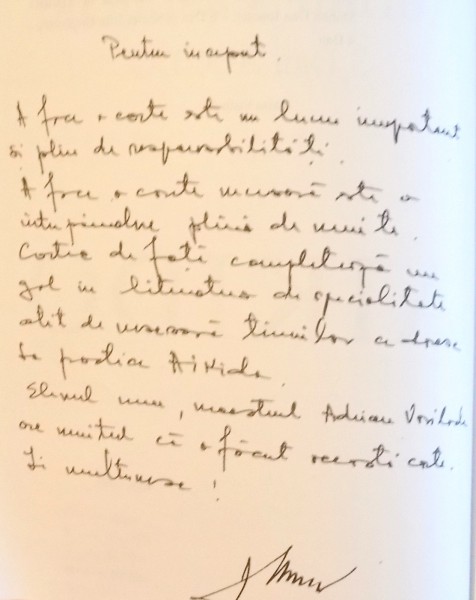 Pentru inceput.
A face o carte este un lucru important
si plin de responsabilități.
A face o carte necesară este o
intreprindere plină de merite.
Cartea de față completează un
gol in literatura de specialitate
atit de necesară tinerilor ce doresc
sa practice Aikido.
Elevul meu, maestrul Adrian Vasilache
are meritul că a făcut această carte.
Ii multumesc!